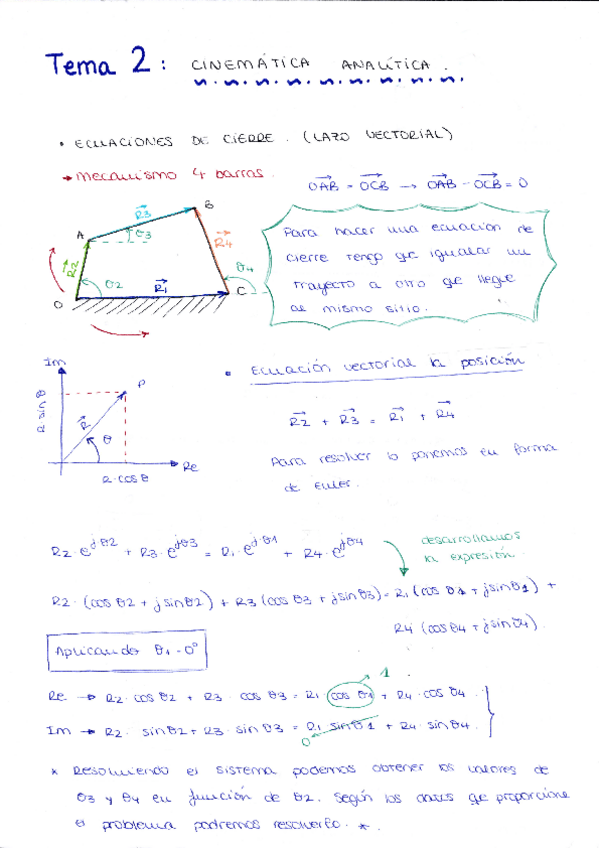 Tema 2: CINEMÁTICA ANALÍTICA.
• ECUACIONES DE CIERRE. (LAZO VECTORIAL)
→ Mecanismo 4 barras.
OAB = OCB → OAB - OCB = 0
A
B
R3
θ3
R4
R2
θ2
θ4
O
R1
C
Para hacer una ecuación de
cierre tengo que igualar un
trayecto a otro que llegue
al mismo sitio.
Im
P
R sin θ
R
θ
Re
R·cos θ
• Ecuación vectorial la posición
R2 + R3 = R1 + R4
Para resolver lo ponemos en forma
de Euler.
R2·e^jθ2 + R3·e^jθ3 = R1·e^jθ1 + R4·e^jθ4
desarrollamos
la expresión
R2·(cos θ2 + j sin θ2) + R3(cos θ3 + j sin θ3) = R1(cos θ1 + j sin θ1) +
R4(cos θ4 + j sin θ4).
Aplicando θ1 = 0°
1
Re → R2·cos θ2 + R3·cos θ3 = R1·cos θ1 + R4·cos θ4.
Im → R2·sin θ2 + R3·sin θ3 = R1 sin θ1 + R4·sin θ4.
0
* Resolviendo el sistema podemos obtener los valores de
θ3 y θ4 en función de θ2. Según los datos que proporcione
el problema podremos resolverlo. *.